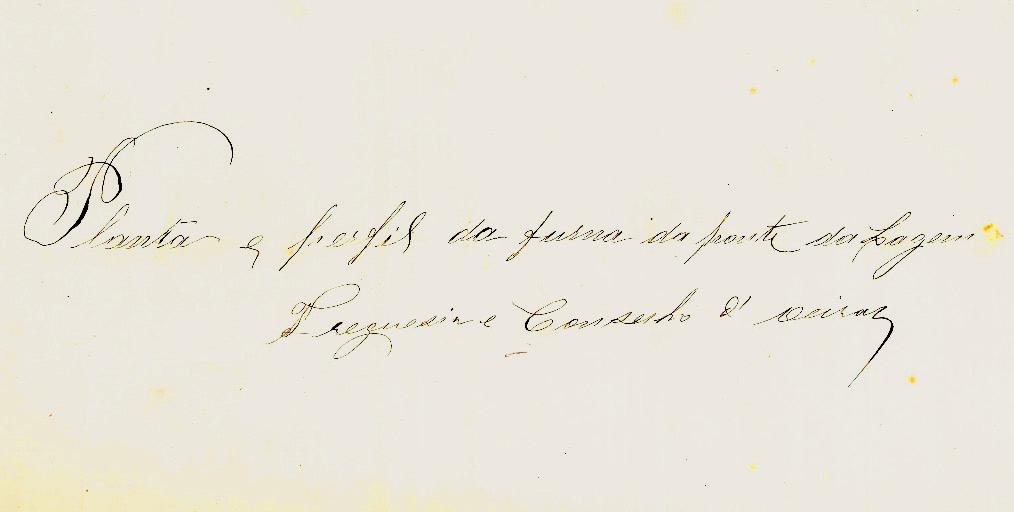 Planta e perfil da furna da ponte da Lagem
Freguesia e Conselho d' Oeiras